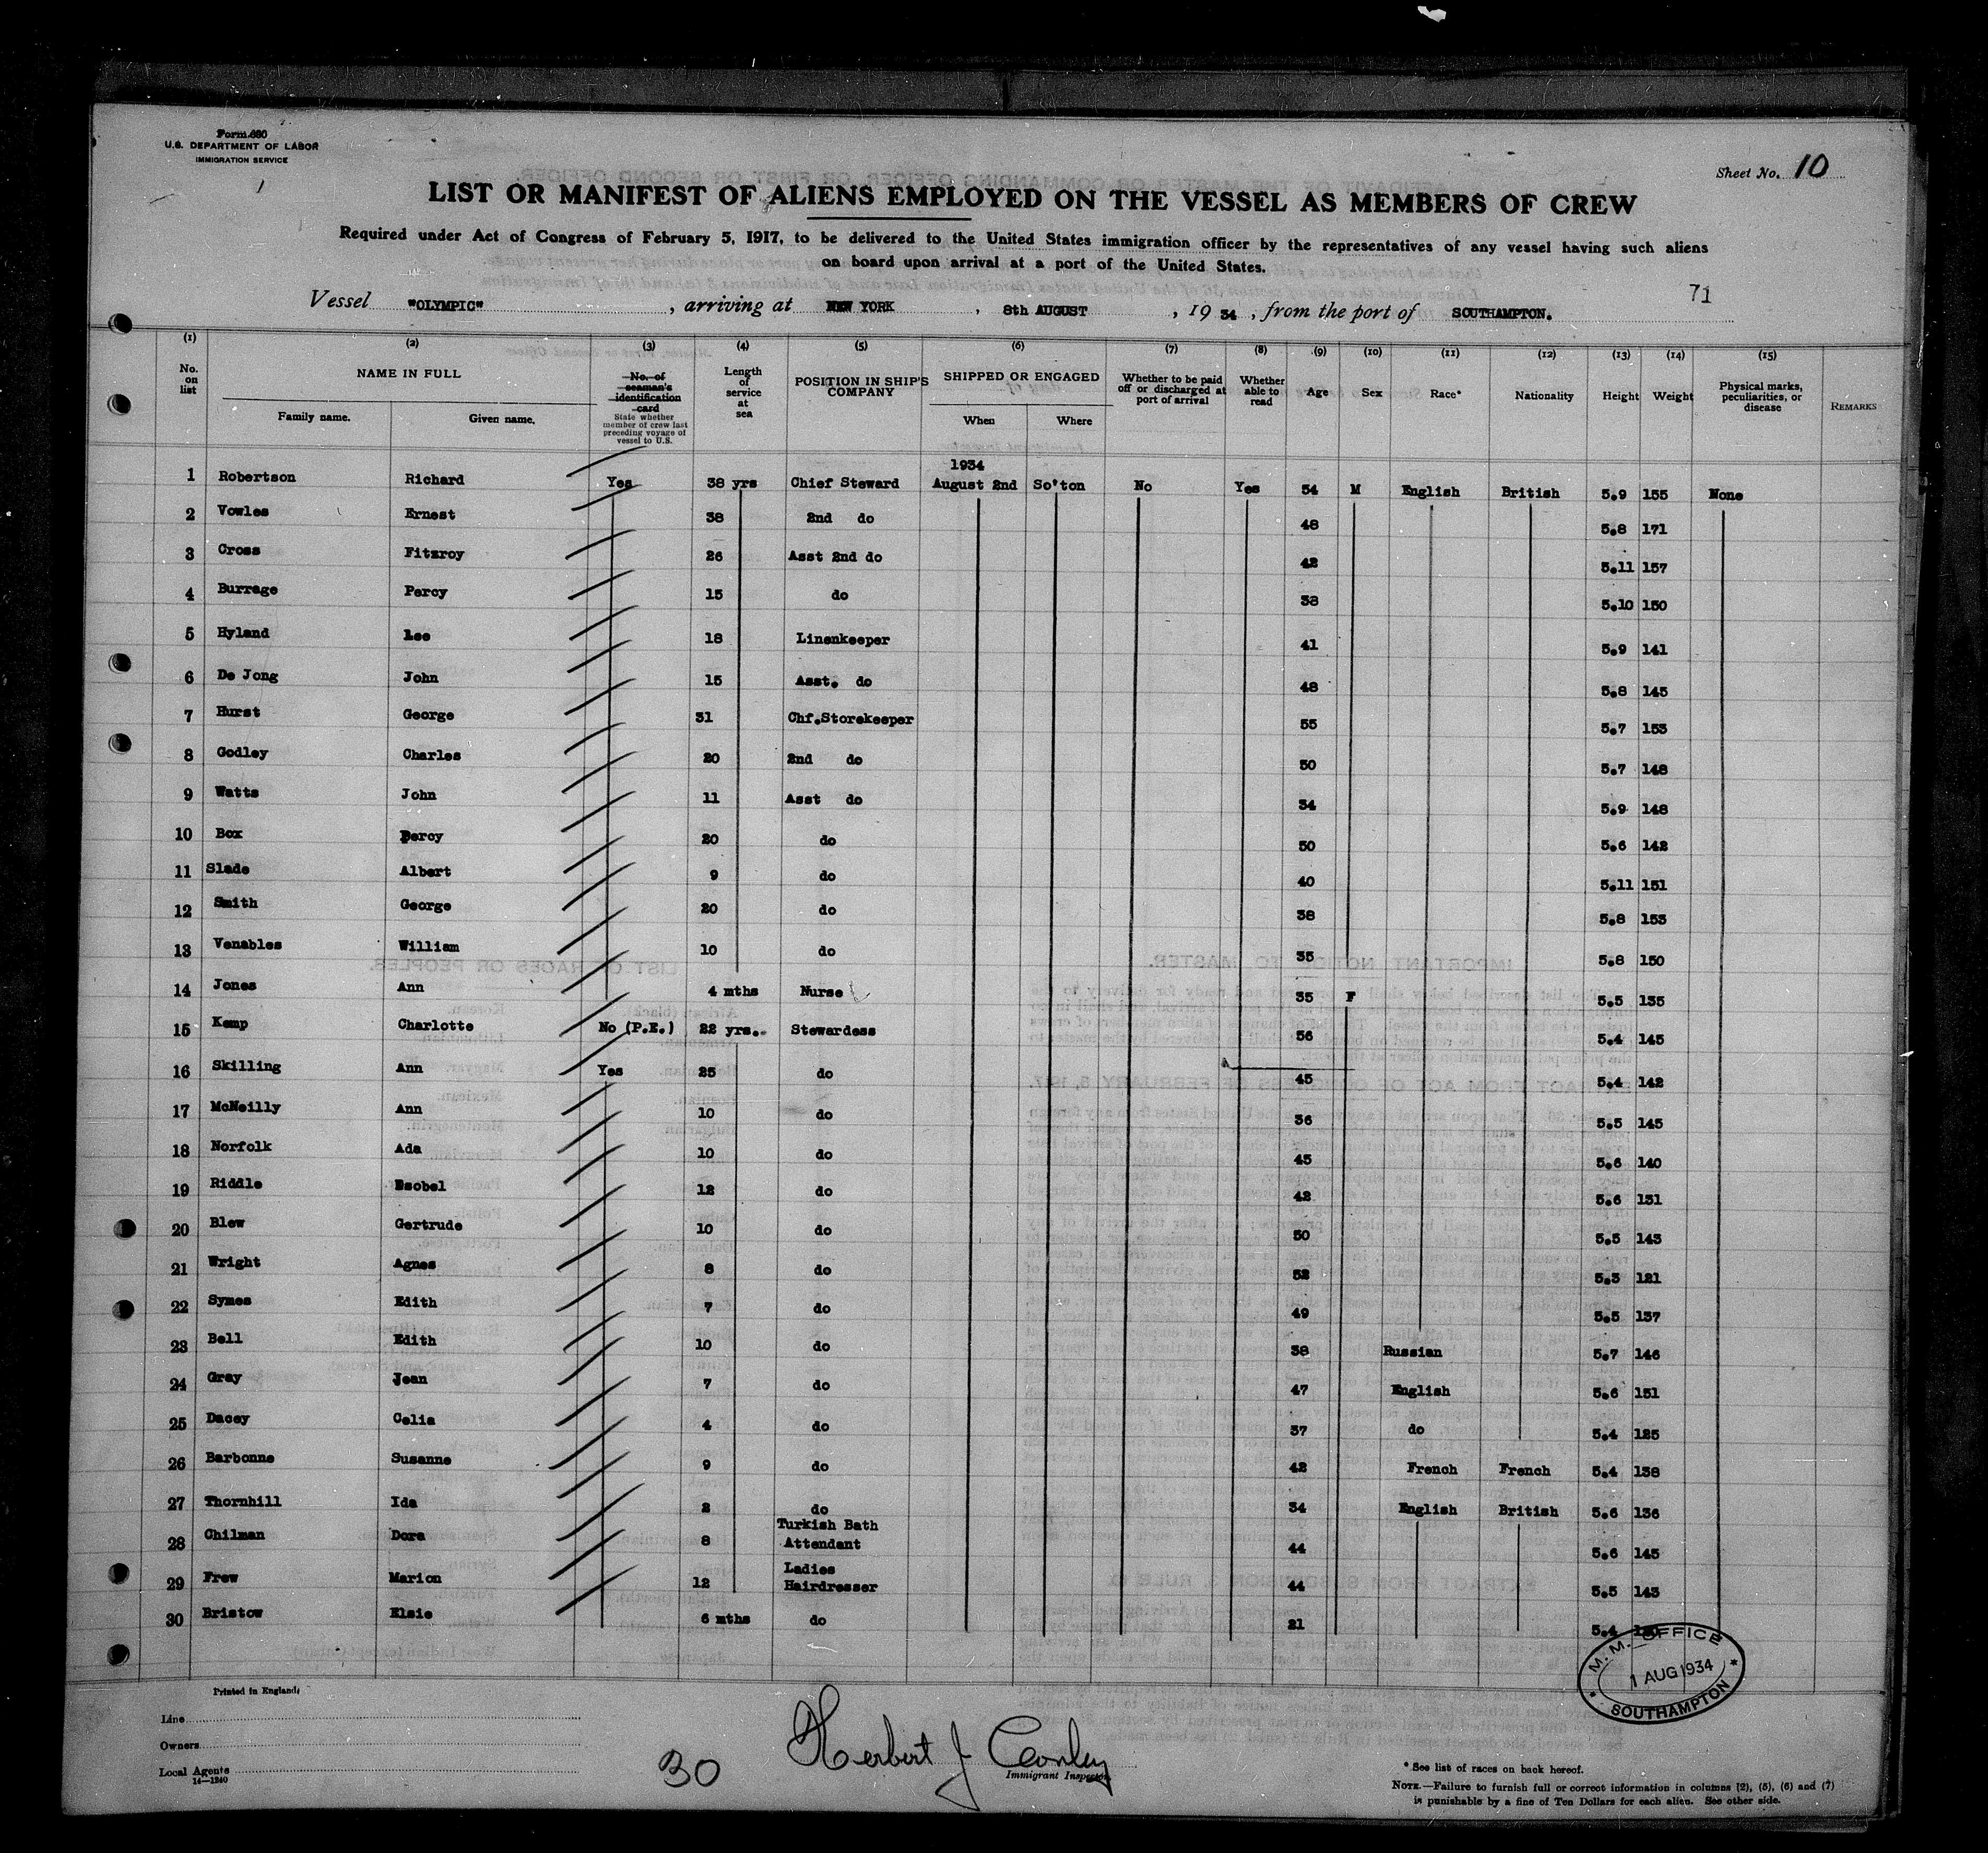 Form 680
U.S. DEPARTMENT OF LABOR
IMMIGRATION SERVICE
Sheet No. 10
LIST OR MANIFEST OF ALIENS EMPLOYED ON THE VESSEL AS MEMBERS OF CREW
Required under Act of Congress of February 5, 1917, to be delivered to the United States immigration officer by the representatives of any vessel having such aliens
on board upon arrival at a port of the United States.
71
Vessel "OLYMPIC", arriving at NEW YORK, 8th AUGUST, 19 34, from the port of SOUTHAMPTON.
(1) (2) (3) (4) (5) (6) (7) (8) (9) (10) (11) (12) (13) (14) (15)
No. on list NAME IN FULL Family name. Given name. No. of seaman's identification card State whether member of crew last preceding voyage of vessel to U.S. Length of service at sea POSITION IN SHIP'S COMPANY SHIPPED OR ENGAGED When Where Whether to be paid off or discharged at port of arrival Whether able to read Age Sex Race* Nationality Height Weight Physical marks, peculiarities, or disease REMARKS
1934
1 Robertson Richard Yes 38 yrs Chief Steward August 2nd So'ton No Yes 54 M English British 5.9 155 None
2 Vowles Ernest 38 2nd do 48 5.8 171
3 Cross Fitzroy 26 Asst 2nd do 42 5.11 157
4 Burrage Percy 15 do 38 5.10 150
5 Hyland Leo 18 Linenkeeper 41 5.9 141
6 De Jong John 15 Asst. do 48 5.8 145
7 Hurst George 31 Chf.Storekeeper 55 5.7 153
8 Godley Charles 20 2nd do 50 5.7 148
9 Watts John 11 Asst do 34 5.9 148
10 Box Percy 20 do 50 5.6 142
11 Slade Albert 9 do 40 5.11 151
12 Smith George 20 do 38 5.8 153
13 Venables William 10 do 35 5.8 150
14 Jones Ann 4 mths Nurse 35 F 5.5 135
15 Kemp Charlotte No (P.E.) 22 yrs. Stewardess 56 5.4 145
16 Skilling Ann Yes 25 do 45 5.4 142
17 McNeilly Ann 10 do 36 5.5 145
18 Norfolk Ada 10 do 45 5.6 140
19 Riddle Esobel 12 do 42 5.6 131
20 Blew Gertrude 10 do 50 5.5 143
21 Wright Agnes 8 do 52 5.3 121
22 Symes Edith 7 do 49 5.5 137
23 Bell Edith 10 do 38 Russian 5.7 146
24 Gray Jean 7 do 47 English 5.6 151
25 Dacey Celia 4 do 37 do 5.4 125
26 Barbonne Susanne 9 do 42 French French 5.4 138
27 Thornhill Ida 2 do 34 English British 5.6 136
28 Chilman Dora 8 Turkish Bath Attendant 44 5.6 145
29 Frew Marion 12 Ladies Hairdresser 44 5.5 143
30 Bristow Elsie 6 mths do 21 5.4
M. M. OFFICE
1 AUG 1934
SOUTHAMPTON
Printed in England.
Line
Owners
Local Agents
14—1240
30
Herbert J Conley
Immigrant Inspector
* See list of races on back hereof.
NOTE.—Failure to furnish full or correct information in columns (2), (5), (6) and (7)
is punishable by a fine of Ten Dollars for each alien. See other side.